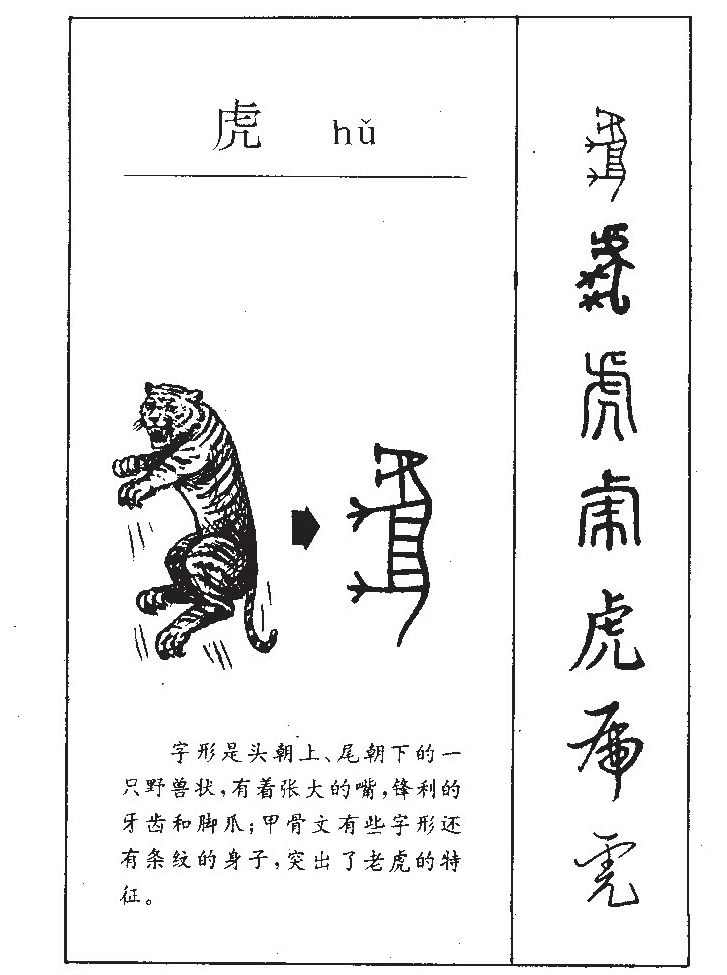 虎 hǔ
字形是头朝上、尾朝下的一
只野兽状，有着张大的嘴，锋利的
牙齿和脚爪；甲骨文有些字形还
有条纹的身子，突出了老虎的特
征。
虎
虎
虎
虎
虎
虎
虎